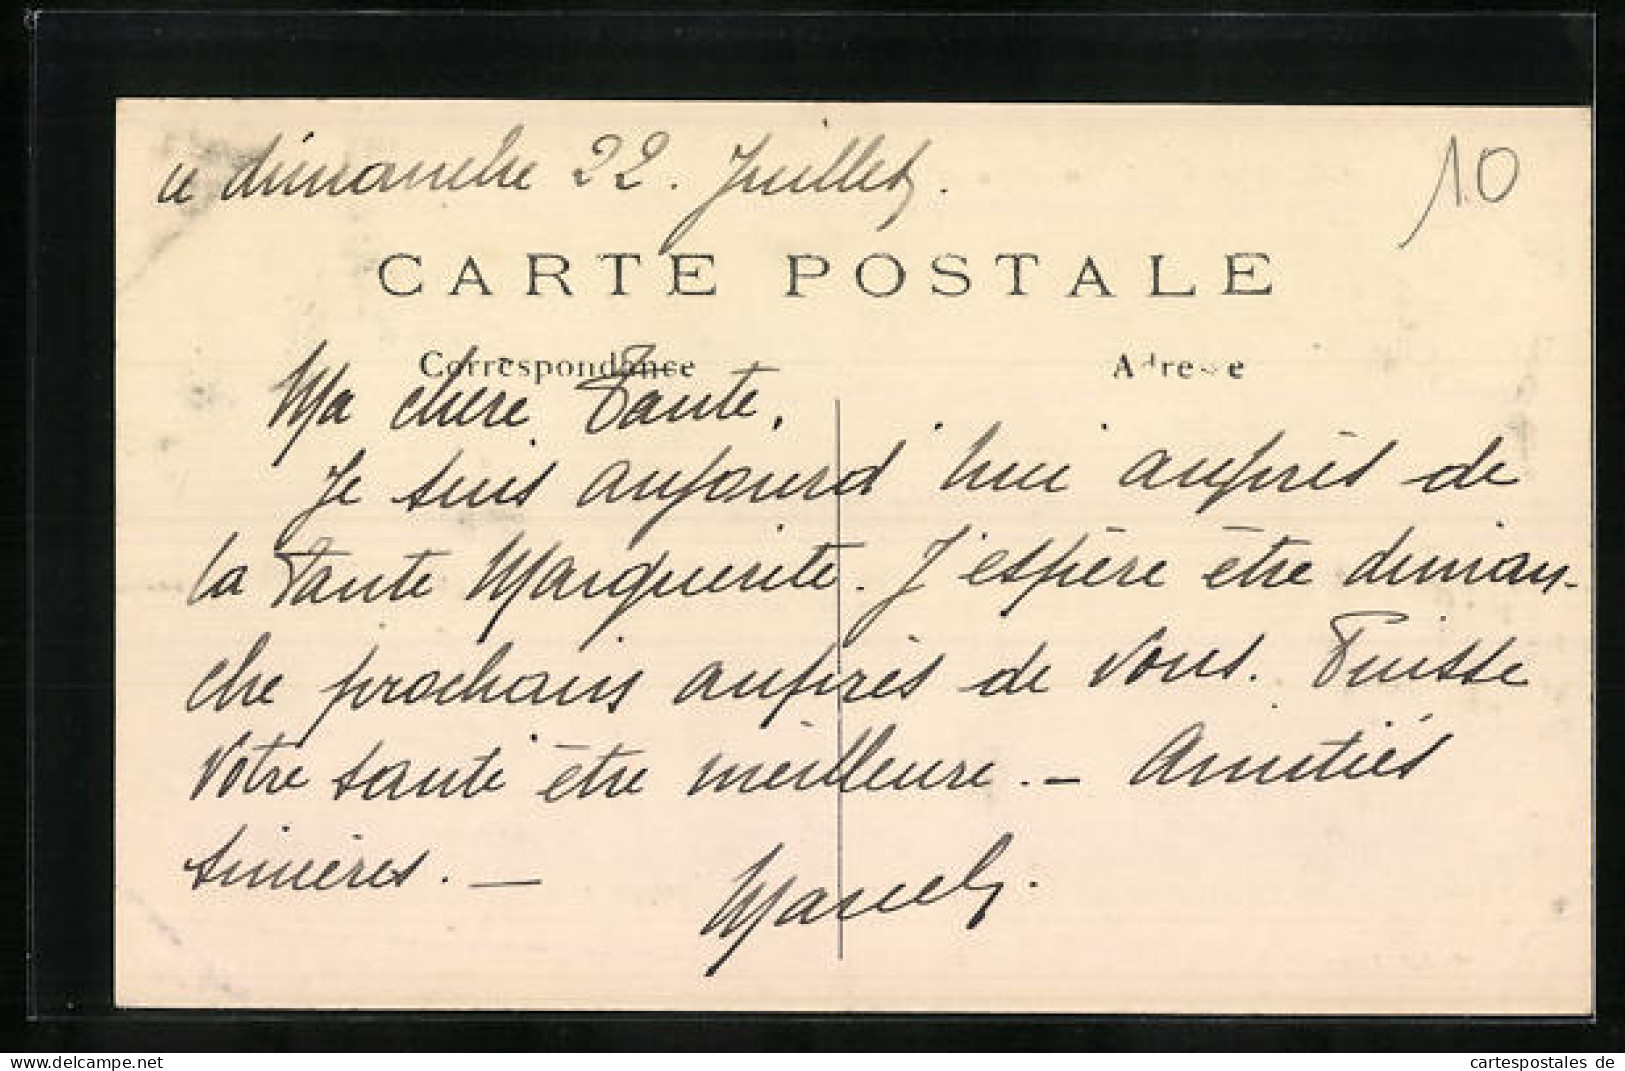 ce dimanche 22. Juillet.
10
CARTE POSTALE
Correspondance
Adresse
Ma chère Tante,
Je suis aujourd'hui auprès de
la Tante Marguerite. J'espère être diman-
che prochain auprès de vous. Puisse
votre santé être meilleure. — Amitiés
sincères. —
Marcel.
cartespostales de